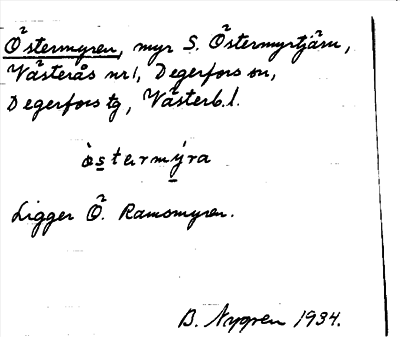 Östermyren, myr S. Östermyrtjärn,
Västerås nr 1, Degerfors sn,
Degerfors tg, Västerb. l.
ò̀stermýra
Ligger Ö. Ramsmyren.
B. Nygren 1934.